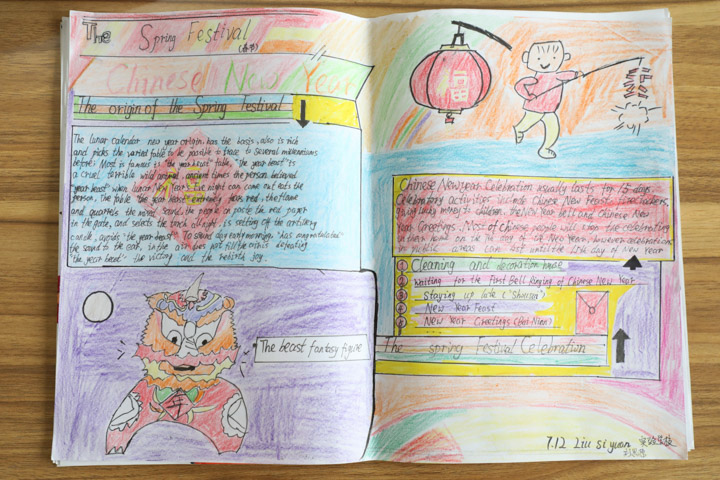 The Spring Festival
(春节)
Chinese New Year
The origin of the Spring Festival
The lunar calendar new year origin, has the basis, also is rich
and picks the varied fable to be possible to trace to several millenniums
before. Most is famous is "the year beast" fable. "the year beast" is
a cruel terrible wild animal, ancient times the person believed
year beast" when lunar New Year's Eve night can come out eats the
person. The fable "the year beast" extremely fears red, the flame
and quarrels the mixed sound, the people on paste the red paper
in the gate, and selects the torch all night, is setting off the artillery
candle, avoids "the year beast". To second day early morning, "has congratulated"
the sound to the ear, in the air does not fill the critic defeating
"the year beast" the victory and the rebirth joy.
年
The beast fantasy figure
Chinese New year Celebration usually lasts for 15 days.
Celebratory activities include Chinese New Feast, firecrackers,
giving lucky money to children, the New Year bell and Chinese New
Year Greetings. Most of Chinese people will stop the celebrating
in their home on the 7th day of New Year, however celebrations
in public areas can last until the 15th day of new year
1 Cleaning and decoration house
2 Waiting for the First Bell Ringing of Chinese New Year
3 Staying up late ("shousui")
4 New Year Feast
5 New Year Greetings (Bai Nian)
The spring Festival Celebration
7.12 Liu si yuan